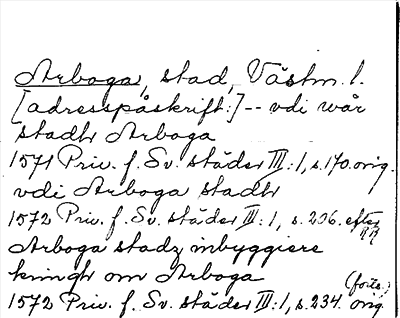 Arboga, stad, Västm. l.
[adresspåskrift:] -- vdi wår
stadh Arboga
1571 Priv. f. Sv. städer III:1, s. 170. orig.
vdi Arboga stadh
1572 Priv. f. Sv. städer III:1, s. 236. efter RR
Arboga stadz inbyggiere
kringh om Arboga
(forts.)
1572 Priv. f. Sv. städer III:1, s. 234. orig